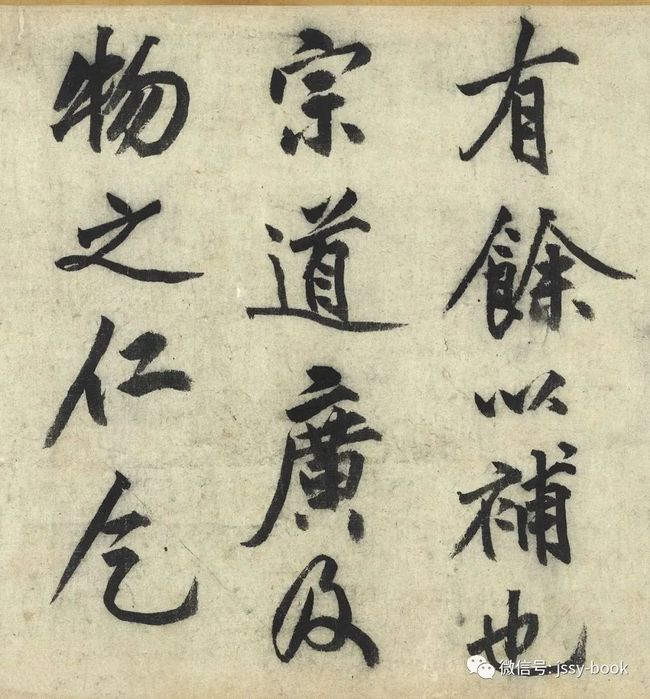 有餘以補也
宗道廣及
物之仁乞
微信号: jssy-book